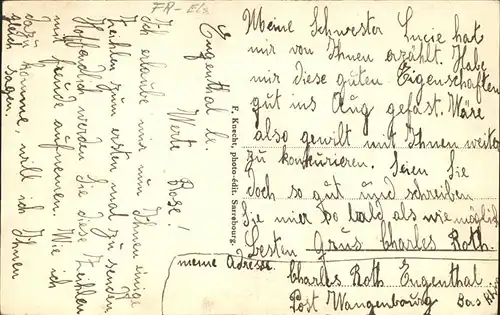 FR - Els
Eugenthal le.
Werte Rose!
Ich erlaube mir nun Ihnen einige
Zeihlen zum ersten mal zu senden.
Hoffendlich werden Sie diese Zeihlen
mit freude aufnemen. Wie ich
dazu komme, will ich Ihnen
gleich sagen.
F. Knecht, photo-édit. Sarrebourg.
Meine Schwester Lucie hat
mir von Ihnen erzählt. Habe
mir diese guten Eigenschaften
gut ins Aug gefast. Wäre
also gewilt mit Ihnen weiter
zu konkurieren. Seien Sie
doch so gut und schreiben
Sie mir so bald als wie möglich
Besten Grus Charles Roth.
meine Adresse
Charles Roth Engenthal
Post Wangenbourg Bas Rhin